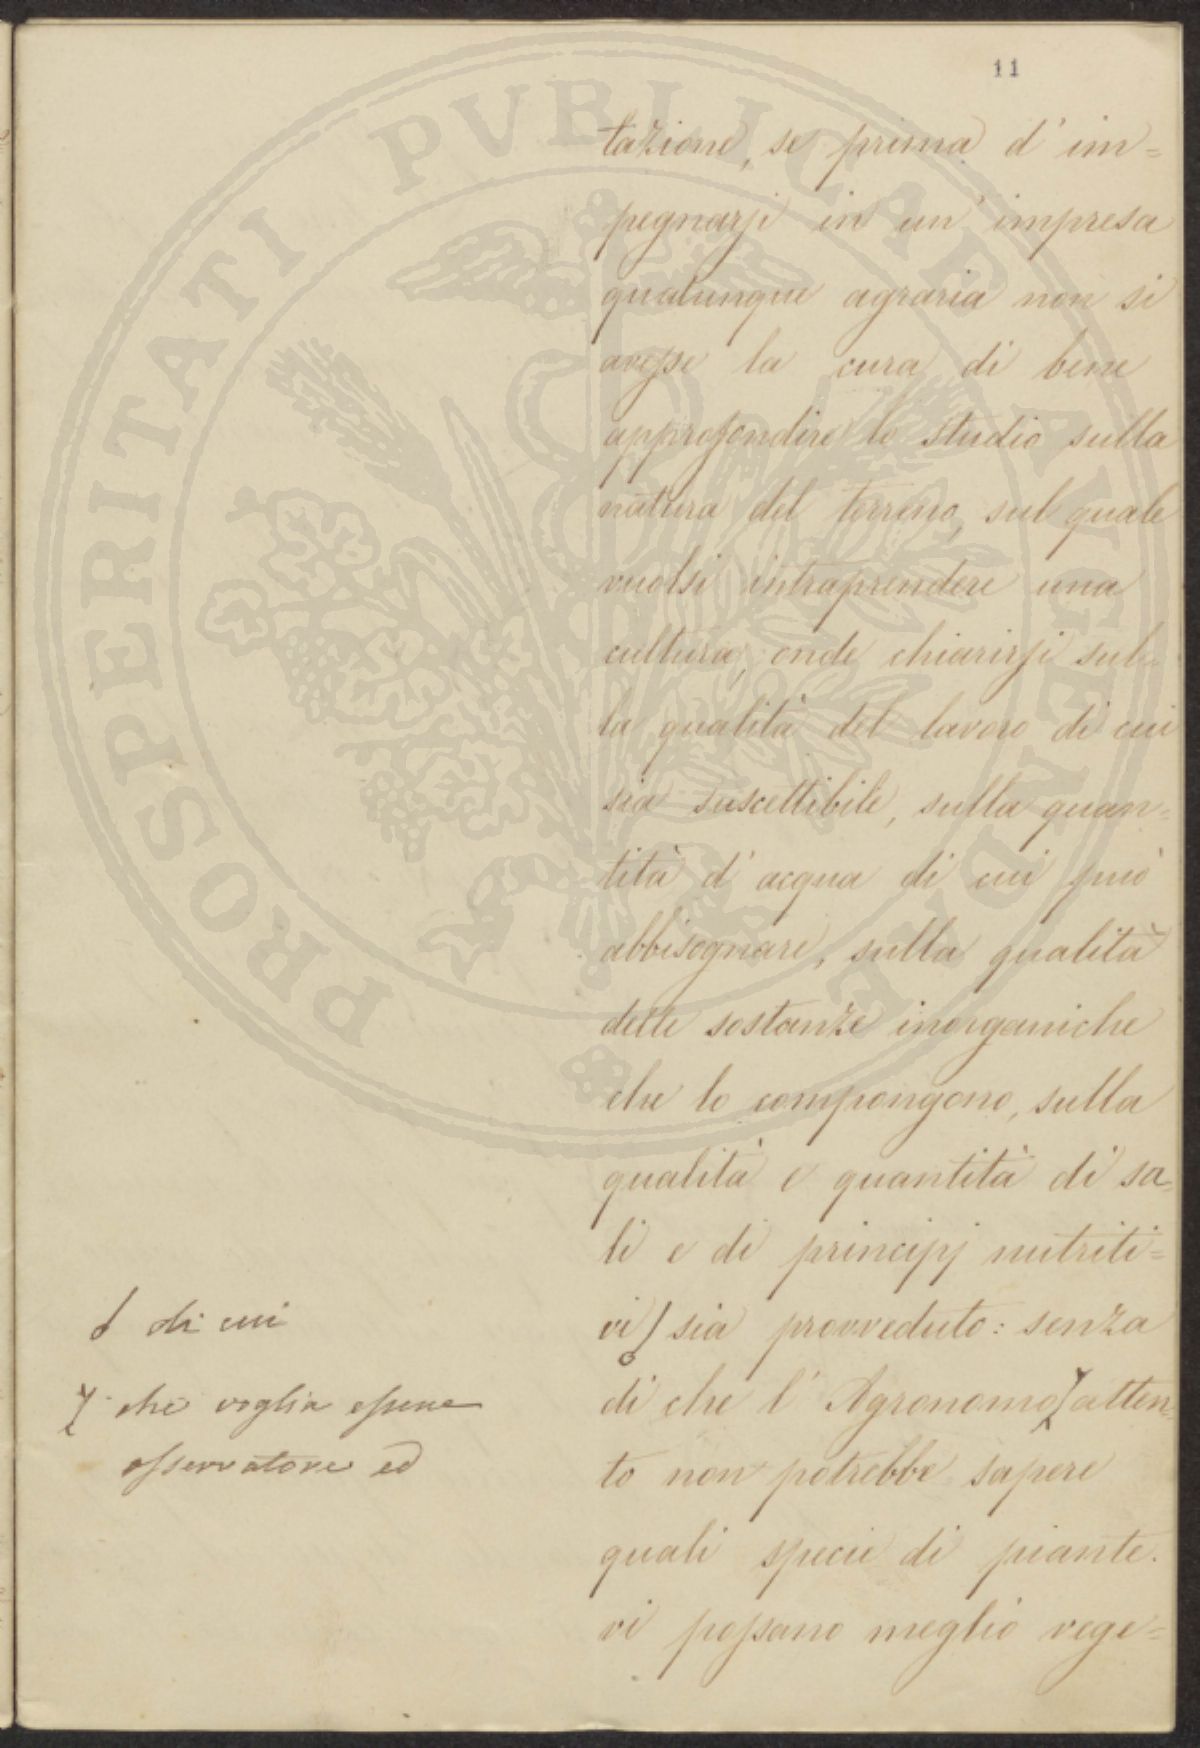 11
tazione, se prima d' im=
pegnarsi in un' impresa
qualunque agraria non si
avesse la cura di bene
approfondire lo studio sulla
natura del terreno, sul quale
vuolsi intraprendere una
cultura, onde chiarirsi sul=
la qualità del lavoro di cui
sia suscettibile, sulla quan=
tità d' acqua di cui può
abbisognare, sulla qualità
delle sostanze inorganiche
che lo compongono, sulla
qualità e quantità di sa=
li e di principj nutriti=
vi sia provveduto: senza
di che l' Agronomo atten=
to non potrebbe sapere
quali specie di piante.
vi possano meglio vege=
di cui
che voglia essere
osservatore ed
PROSPERITATI PVBLICAE AVGENDAE